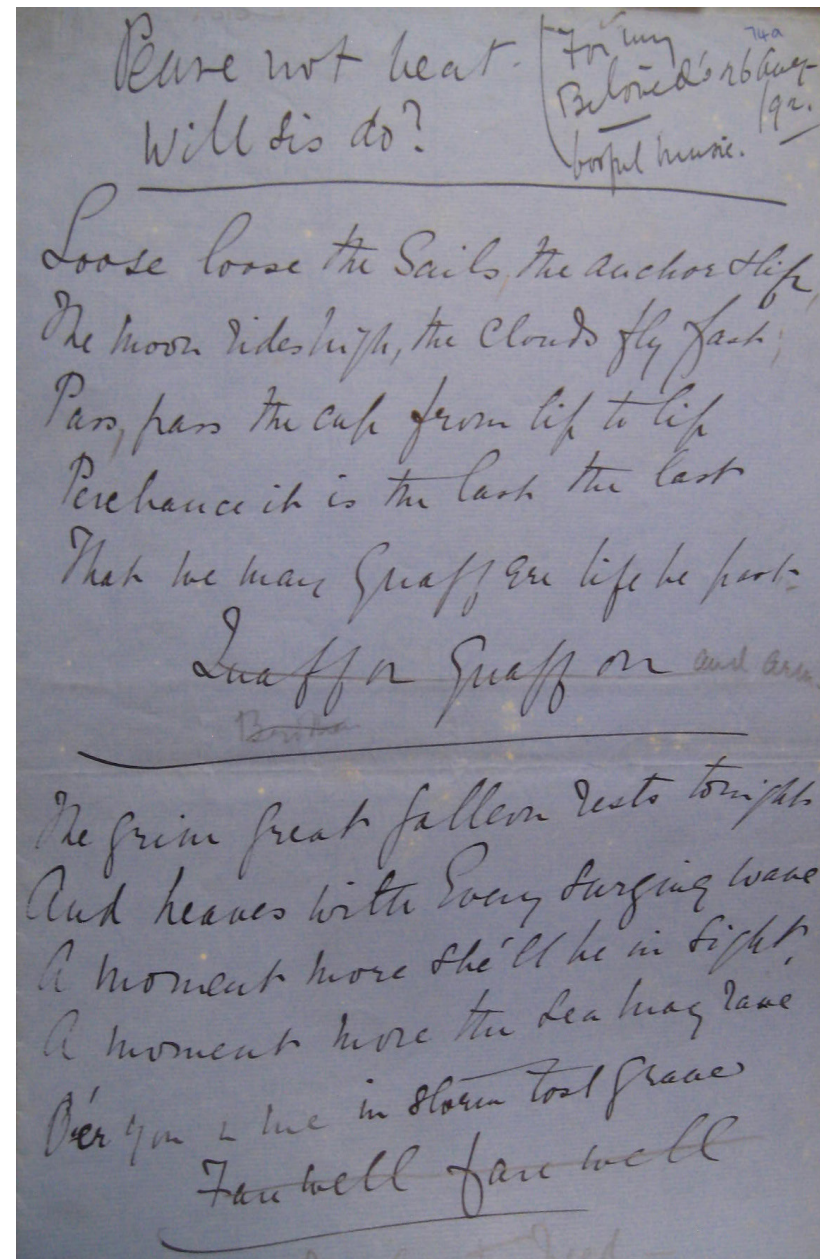 Pease not beat.
Will dis do?
74a
For my
Beloved's 26 Aug
/92.
boo'ful music.
Loose loose the Sails, the anchor slip,
The moon rides high, the Clouds fly fast;
Pass, pass the cup from lip to lip
Perchance it is the last the last
That we may Quaff ere life be past.
Quaff on Quaff on and
The grim great galleon rests tonight
And heaves with Every surging wave
A moment more she'll be in sight,
A moment more the sea may rave
O'er you & me in storm tost grave
Farewell farewell